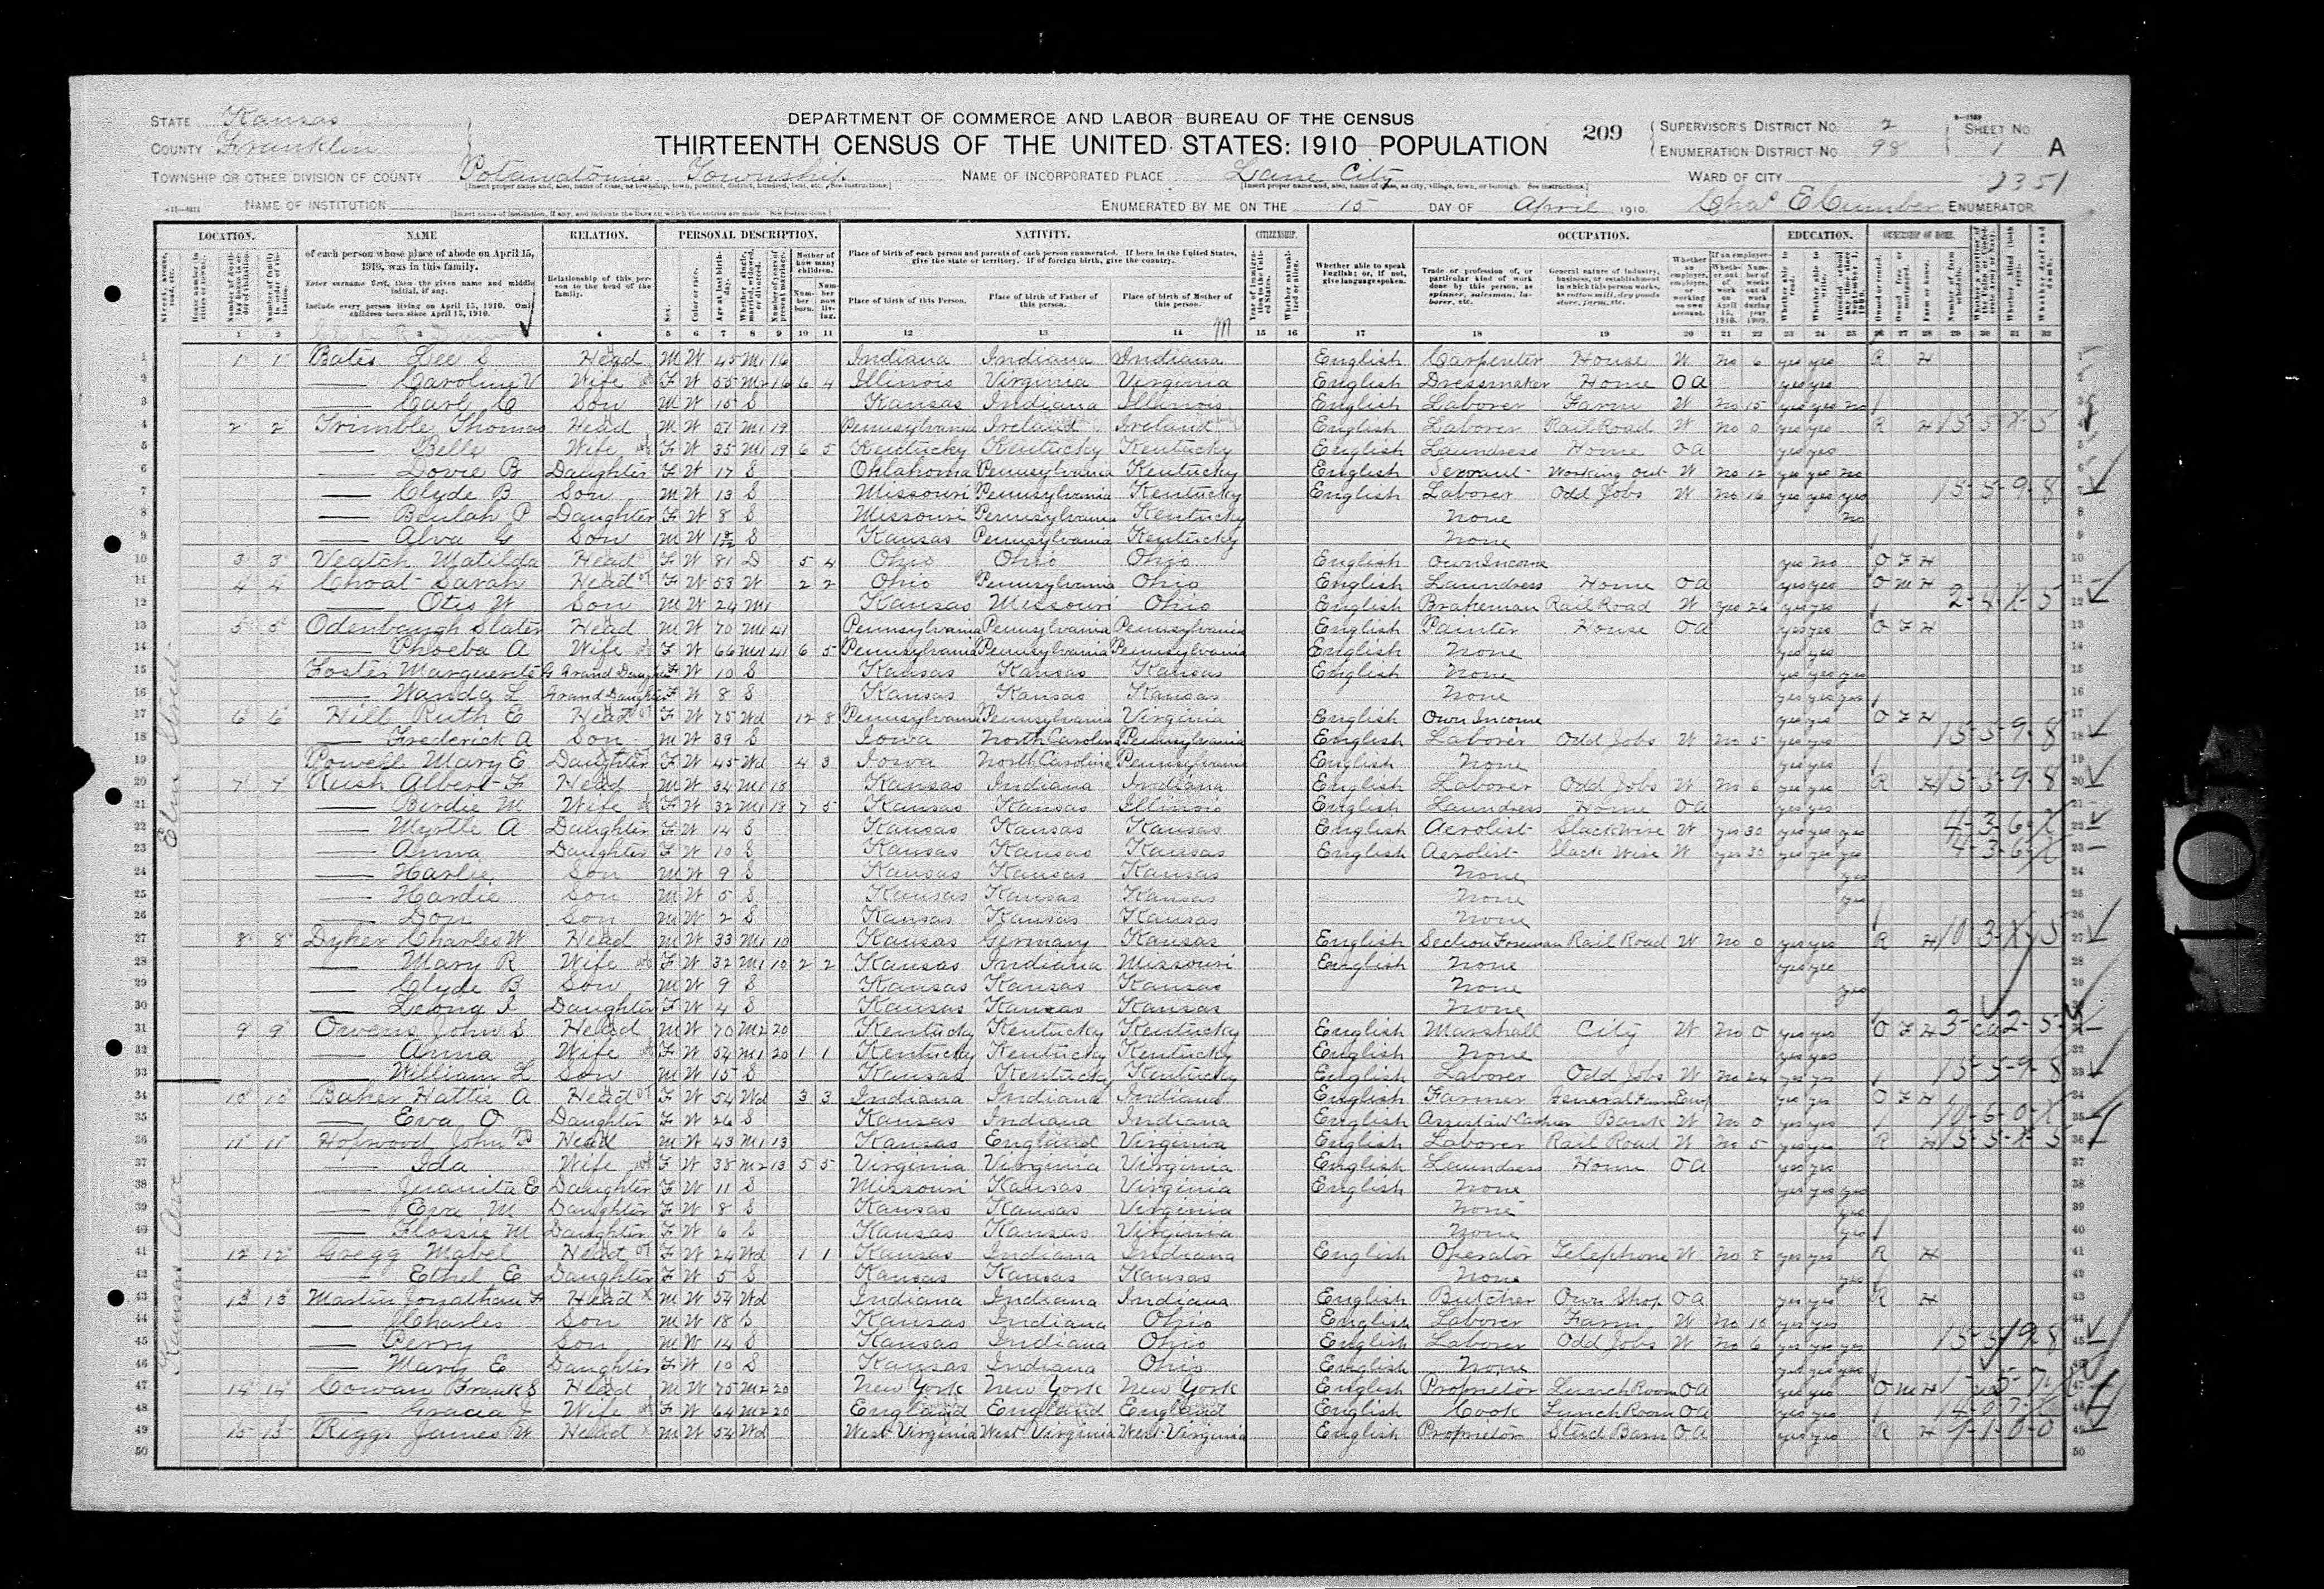 DEPARTMENT OF COMMERCE AND LABOR–BUREAU OF THE CENSUS
THIRTEENTH CENSUS OF THE UNITED STATES: 1910—POPULATION
209
STATE Kansas
COUNTY Franklin
SUPERVISOR'S DISTRICT NO. 2
ENUMERATION DISTRICT NO. 98
SHEET NO. 1 A
TOWNSHIP OR OTHER DIVISION OF COUNTY Potawatomie Township
NAME OF INCORPORATED PLACE Lane City
WARD OF CITY
2351
NAME OF INSTITUTION
ENUMERATED BY ME ON THE 15 DAY OF April 1910. Chas E Cumber ENUMERATOR
LOCATION. NAME RELATION. PERSONAL DESCRIPTION. NATIVITY. CITIZENSHIP. OCCUPATION. EDUCATION. OWNERSHIP OF HOME.
of each person whose place of abode on April 15, 1910, was in this family.
Enter surname first, then the given name and middle initial, if any.
Include every person living on April 15, 1910. Omit children born since April 15, 1910.
Relationship of this person to the head of the family.
Place of birth of each person and parents of each person enumerated. If born in the United States, give the state or territory. If of foreign birth, give the country.
Place of birth of this Person. Place of birth of Father of this person. Place of birth of Mother of this person.
Whether able to speak English; or, if not, give language spoken.
Trade or profession of, or particular kind of work done by this person, as spinner, salesman, laborer, etc.
General nature of industry, business, or establishment in which this person works, as cotton mill, dry goods store, farm, etc.
Elm Street
1 1 1 Bates Lee S Head M W 45 M1 16 Indiana Indiana Indiana English Carpenter House W no 6 yes yes R H
2 — Caroline V Wife F W 55 M2 16 6 4 Illinois Virginia Virginia English Dressmaker Home OA yes yes
3 — Carl C Son M W 15 S Kansas Indiana Illinois English Laborer Farm W no 15 yes yes no
4 2 2 Trimble Thomas Head M W 57 M1 19 Pennsylvania Ireland Ireland English Laborer Rail Road W no 0 yes yes R H
5 — Belle Wife F W 35 M1 19 6 5 Kentucky Kentucky Kentucky English Laundress Home OA yes yes
6 — Dovie B Daughter F W 17 S Oklahoma Pennsylvania Kentucky English Servant Working Out W no 12 yes yes no
7 — Clyde B Son M W 13 S Missouri Pennsylvania Kentucky English Laborer Odd Jobs W no 16 yes yes yes
8 — Beulah P Daughter F W 8 S Missouri Pennsylvania Kentucky None no
9 — Alva G Son M W S Kansas Pennsylvania Kentucky None
10 3 3 Veatch Matilda Head F W 81 D 5 4 Ohio Ohio Ohio English Own Income yes no O F H
11 4 4 Choat Sarah Head F W 53 W 2 2 Ohio Pennsylvania Ohio English Laundress Home OA yes yes O M H
12 — Otis W Son M W 24 M1 Kansas Missouri Ohio English Brakeman Rail Road W yes 26 yes yes
13 5 5 Odenbaugh Slater Head M W 70 M1 41 Pennsylvania Pennsylvania Pennsylvania English Painter House OA yes yes O F H
14 — Phoeba A Wife F W 66 M1 41 6 5 Pennsylvania Pennsylvania Pennsylvania English None yes yes
15 Foster Marguerite G Grand Daughter F W 10 S Kansas Kansas Kansas English None yes yes yes
16 — Wanda L Grand Daughter F W 8 S Kansas Kansas Kansas None yes yes yes
17 6 6 Hill Ruth E Head F W 75 Wd 12 8 Pennsylvania Pennsylvania Virginia English Own Income yes yes O F H
18 — Frederick A Son M W 39 S Iowa North Carolina Pennsylvania English Laborer Odd Jobs W no 5 yes yes
19 Powell Mary E Daughter F W 45 Wd 4 3 Iowa North Carolina Pennsylvania English None yes yes
20 7 7 Rush Albert F Head M W 34 M1 18 Kansas Indiana Indiana English Laborer Odd Jobs W no 6 yes yes R H
21 — Birdie M Wife F W 32 M1 18 7 5 Kansas Kansas Illinois English Laundress Home OA yes yes
22 — Myrtle A Daughter F W 14 S Kansas Kansas Kansas English Aerolist Slack Wire W yes 30 yes yes yes
23 — Anna Daughter F W 10 S Kansas Kansas Kansas English Aerolist Slack Wire W yes 30 yes yes yes
24 — Harlie Son M W 9 S Kansas Kansas Kansas None yes
25 — Hardie Son M W 5 S Kansas Kansas Kansas None yes
26 — Don Son M W 2 S Kansas Kansas Kansas None
27 8 8 Dyker Charles W Head M W 33 M1 10 Kansas Germany Kansas English Section Foreman Rail Road W no 0 yes yes R H
28 — Mary R Wife F W 32 M1 10 2 2 Kansas Indiana Missouri English None yes yes
29 — Clyde B Son M W 9 S Kansas Kansas Kansas None yes
30 — Leona I Daughter F W 4 S Kansas Kansas Kansas None
31 9 9 Owens John S Head M W 70 M2 20 Kentucky Kentucky Kentucky English Marshall City W no 0 yes yes O F H
32 — Anna Wife F W 54 M1 20 1 1 Kentucky Kentucky Kentucky English None yes yes
33 — William L Son M W 15 S Kansas Kentucky Kentucky English Laborer Odd Jobs W no 24 yes yes
Kansas Ave
34 10 10 Baker Hattie A Head F W 54 Wd 3 3 Indiana Indiana Indiana English Farmer General Farm Emp yes yes O F H
35 — Eva O Daughter F W 26 S Kansas Indiana Indiana English Assistant Cashier Bank W no 0 yes yes
36 11 11 Hopwood John Head M W 43 M1 13 Kansas England Virginia English Laborer Rail Road W no 5 yes yes R H
37 — Ida Wife F W 38 M2 13 5 5 Virginia Virginia Virginia English Laundress Home OA yes yes
38 — Juanita E Daughter F W 11 S Missouri Kansas Virginia English None yes yes yes
39 — Eva M Daughter F W 8 S Kansas Kansas Virginia None yes
40 — Flossie M Daughter F W 6 S Kansas Kansas Virginia None yes
41 12 12 Gregg Mabel Head F W 24 Wd 1 1 Kansas Indiana Indiana English Operator Telephone W no 8 yes yes R H
42 — Ethel E Daughter F W 5 S Kansas Kansas Kansas None yes
43 13 13 Martin Jonathan F Head M W 54 Wd Indiana Indiana Indiana English Butcher Own Shop OA yes yes R H
44 — Charles Son M W 18 S Kansas Indiana Ohio English Laborer Farm W no 10 yes yes
45 — Perry Son M W 14 S Kansas Indiana Ohio English Laborer Odd Jobs W no 6 yes yes yes
46 — Mary E Daughter F W 10 S Kansas Indiana Ohio English None yes yes yes
47 14 14 Cowan Frank S Head M W 75 M2 20 New York New York New York English Proprietor Lunch Room OA yes yes O M H
48 — Gracia J Wife F W 64 M2 20 England England England English Cook Lunch Room OA yes yes
49 15 15 Riggs James W Head M W 54 Wd West Virginia West Virginia West Virginia English Proprietor Stud Barn OA yes yes R H
50